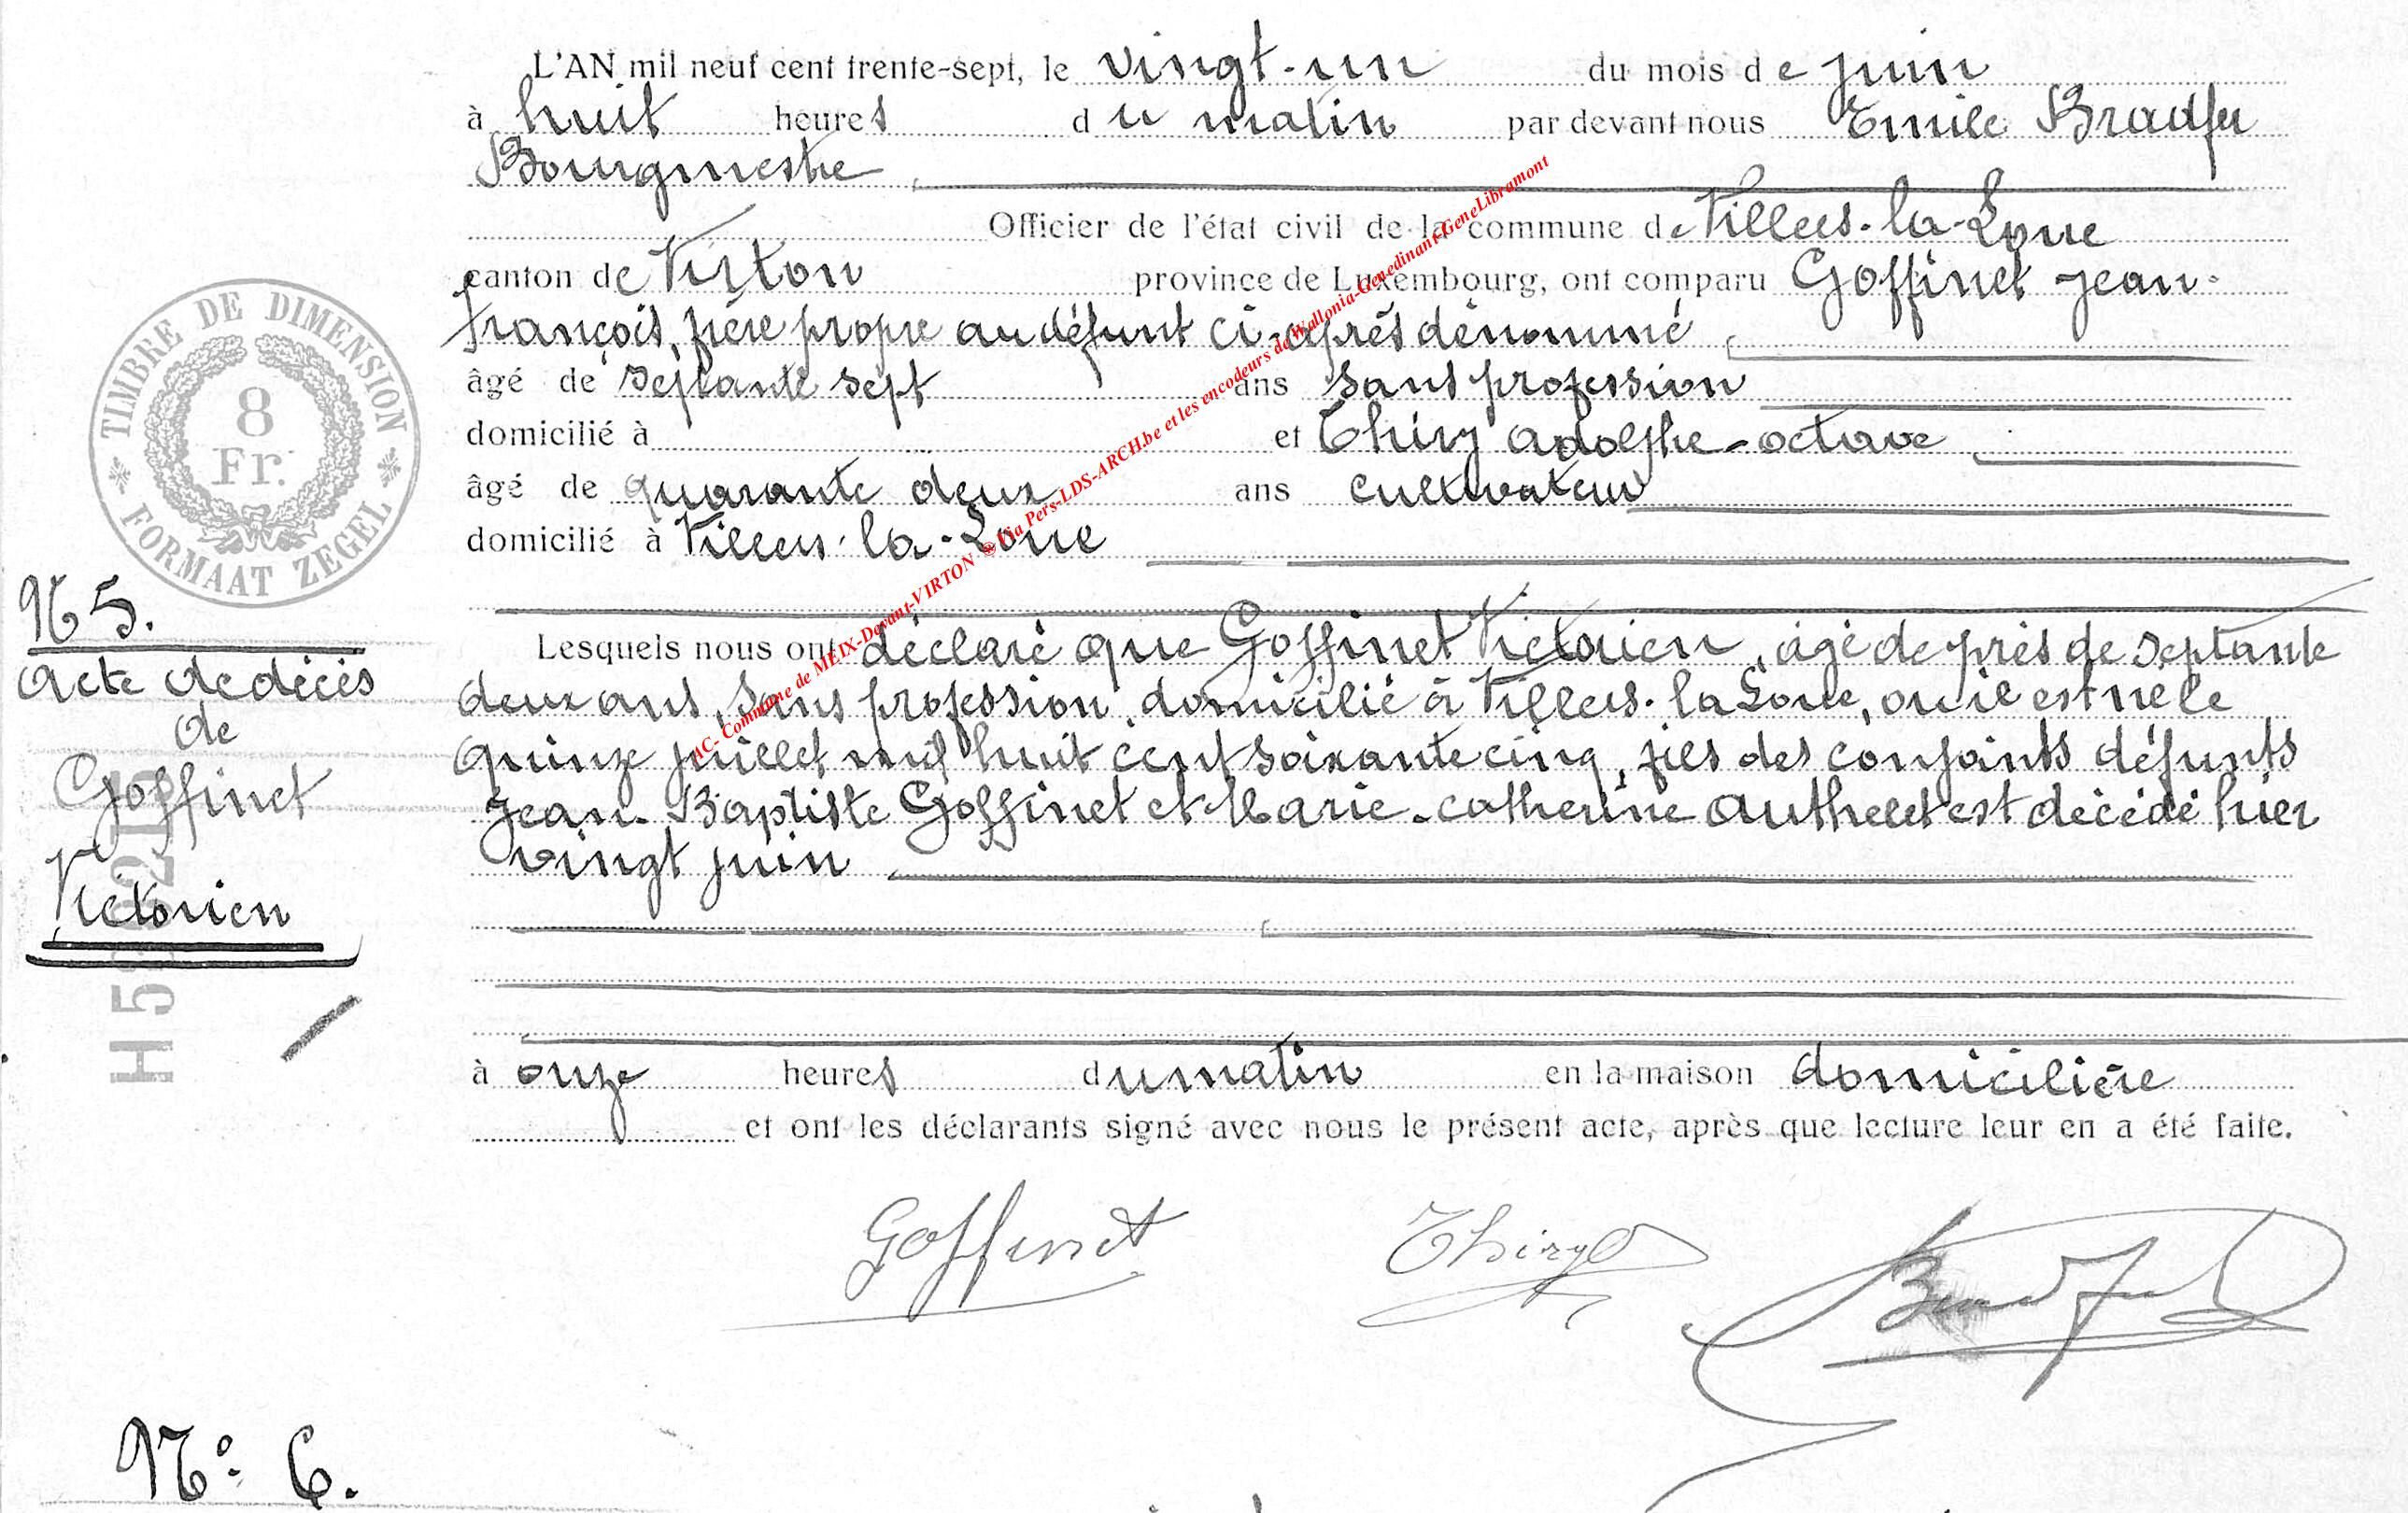 L'AN mil neuf cent trente-sept, le vingt-un du mois de juin
à huit heures du matin par devant nous Emile Bradfer
Bourgmestre
Officier de l'état civil de la commune de Villers-la-Loue
canton de Virton province de Luxembourg, ont comparu Goffinet Jean-
François, frère propre au défunt ci-après dénommé,
âgé de septante sept ans sans profession
domicilié à et Thiry Adolphe-Octave
âgé de quarante deux ans cultivateur
domicilié à Villers-la-Loue
Lesquels nous ont déclaré que Goffinet Victorien, âgé de près de septante
deux ans, sans profession, domicilié à Villers-la Loue, où il est né le
quinze juillet mil huit cent soixante cinq, fils des conjoints défunts
Jean-Baptiste Goffinet et Marie-Catherine Authelet est décédé hier
vingt juin
à onze heures du matin en la maison domicilière
et ont les déclarants signé avec nous le présent acte, après que lecture leur en a été faite.
Goffinet Thiry Bradfer
TIMBRE DE DIMENSION
8
Fr.
FORMAAT ZEGEL
N 5.
Acte de décès
de
Goffinet
Victorien
N° 6.
AC- Commune de MEIX-Devant-VIRTON © Via Pers-LDS-ARCH.be et les encodeurs de Wallonia-Genedinant-GeneLibramont